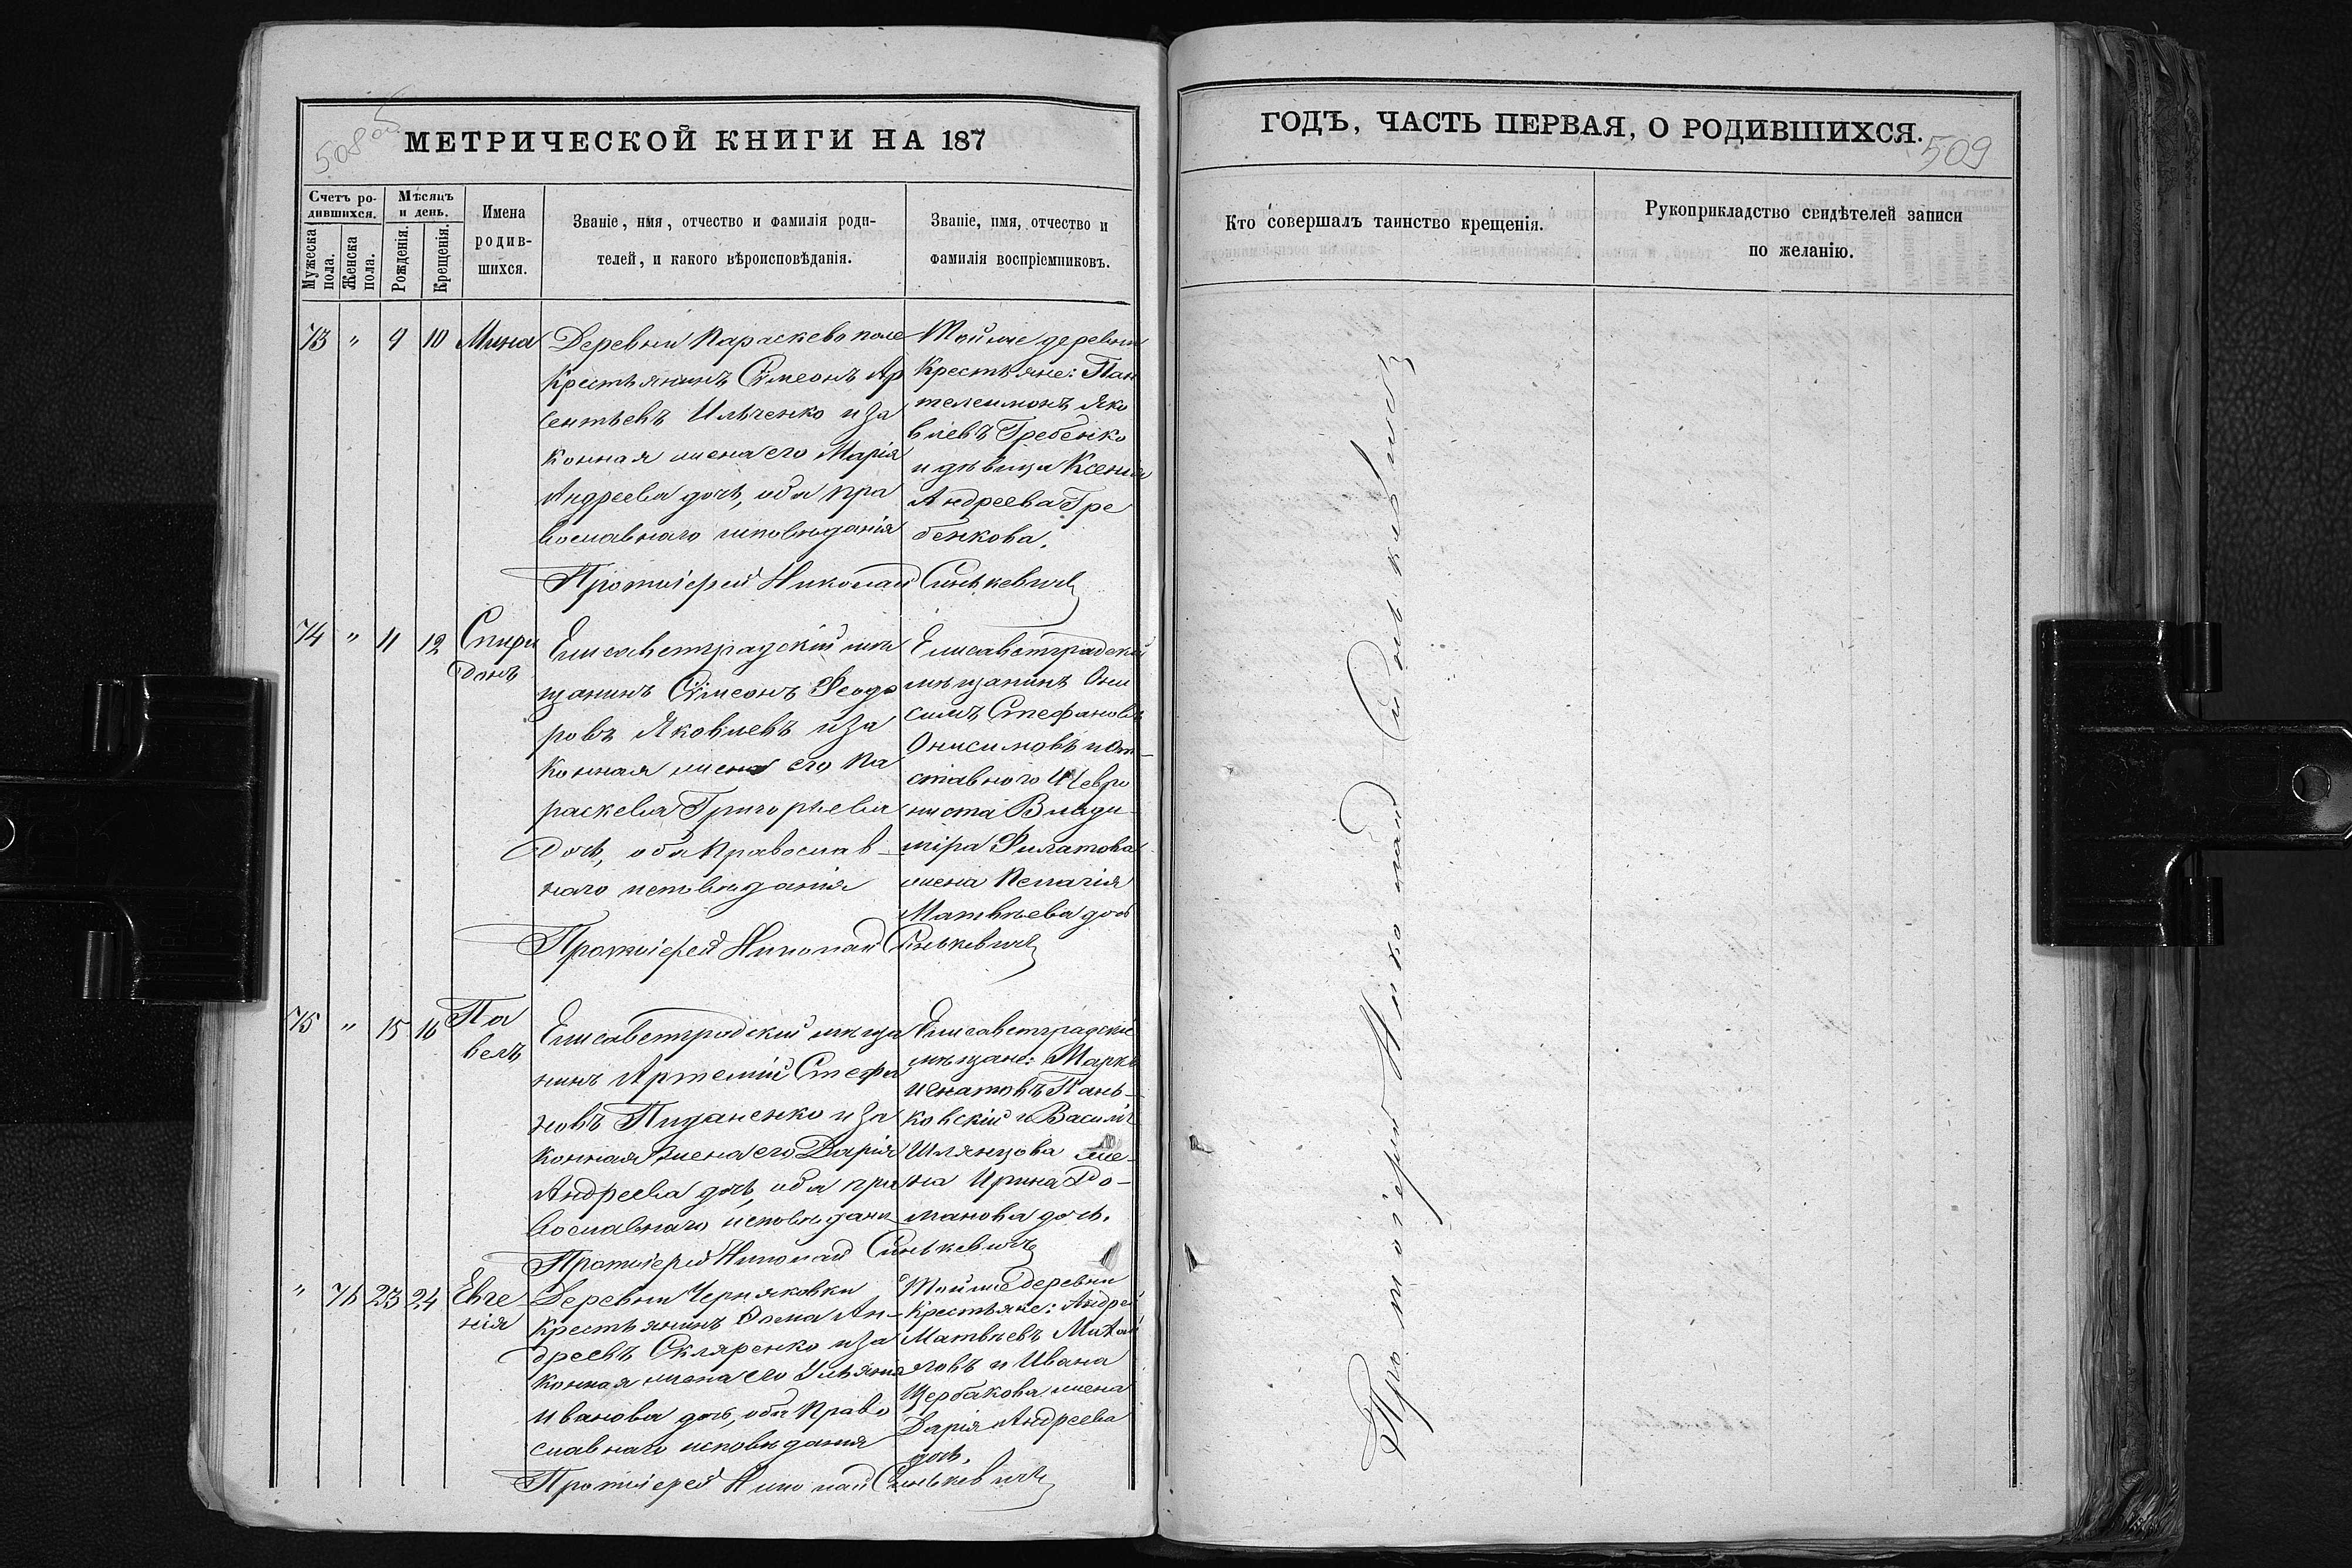 508об
МЕТРИЧЕСКОЙ КНИГИ НА 187
Счетъ ро-
дившихся.
Мужеска пола.
Женска пола.
Мѣсяцъ
и день.
Рожденія.
Крещенія.
Имена
родив-
шихся.
Званіе, имя, отчество и фамилія роди-
телей, и какого вѣроисповѣданія.
Званіе, имя, отчество и
фамилія воспріемниковъ.
73 " 9 10 Мина
Деревни Параскево поле
Крестьянинъ Сѵмеонъ Ар
сентьевъ Ильченко и за
конная жена его Марія
Андреева дочь, оба пра
вославнаго исповѣданія
Тойже деревни
Крестьяне: Пан
телеимонъ Яко
влевъ Гребенко
и дѣвица Ксенія
Андреева Гре
бенкова.
Протоіерей Николай Синькевичъ
74 " 11 12 Спири
донъ
Елисаветградскій мѣ
щанинъ Сѵмеонъ Феодо
ровъ Яковлевъ и за
конная жена его Па
раскева Григорьева
дочь, оба Православ
наго исповѣданія
Елисаветградскій
мѣщанинъ Они
симъ Стефановъ
Онисимовъ и От-
ставного Шевро
ниста Влади-
міра Филатова
жена Пелагія
Матвѣева дочь
Протоіерей Николай Синькевичъ
75 " 15 16 Па
велъ
Елисаветградскій мѣща
нинъ Артемій Стефа
новъ Пиданенко и за
конная жена его Дарія
Андреева дочь, оба пра
вославнаго исповѣдані
Елисаветградскіе
мѣщане: Марко
Игнатовъ Пань-
ковскій и Василія
Шлянцова же-
на Ирина Ро-
манова дочь.
Протоіерей Николай Синькевичъ
" 76 23 24 Евге
нія
Деревни Черняковки
Крестьянинъ Фома Ан-
дреевъ Скляренко и за
конная жена его Ульяна
Иванова дочь, оба Право
славнаго исповѣданія
Тойже деревни
Крестьяне: Андрей
Матвѣевъ Михай
ловъ и Ивана
Щербакова жена
Дарія Андреева
дочь.
Протоіерей Николай Синькевичъ
ГОДЪ, ЧАСТЬ ПЕРВАЯ, О РОДИВШИХСЯ.
509
Кто совершалъ таинство крещенія.
Рукоприкладство свидѣтелей записи
по желанію.
Протоіерей Николай Синькевичъ